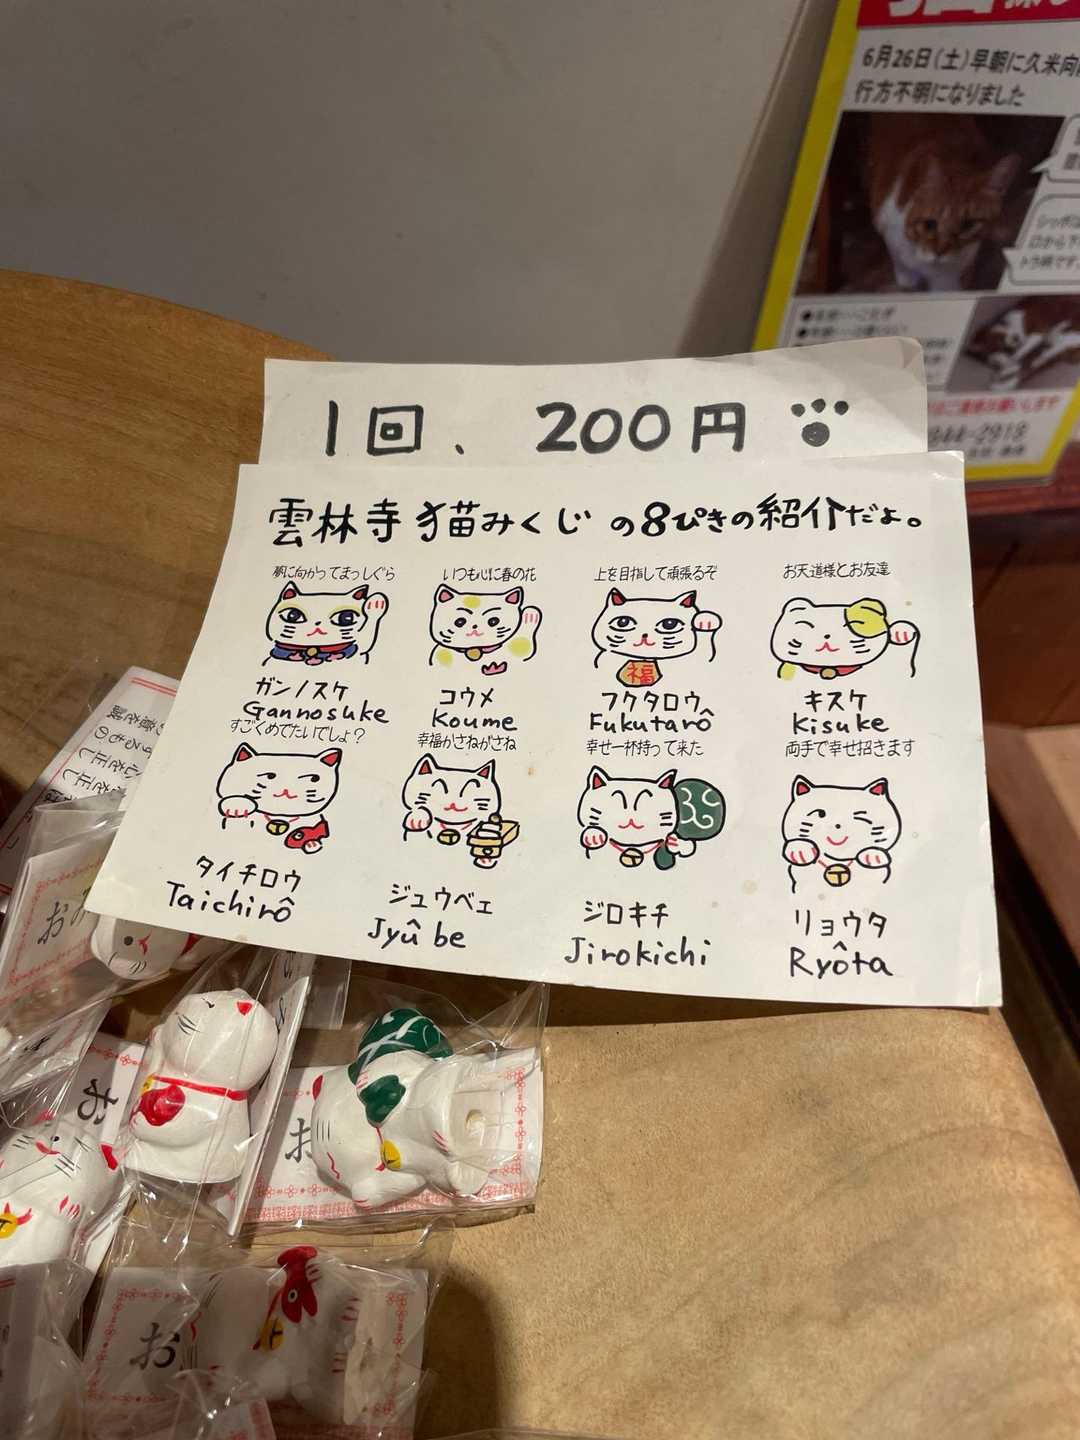 6月26日(土)早朝に久米向
行方不明になりました
シッポは
口から下
トラ柄です。
844-2918
1回、200円
雲林寺猫みくじの8ぴきの紹介だよ。
夢に向かってまっしぐら
いつも心に春の花
上を目指して頑張るぞ
お天道様とお友達
福
ガンノスケ
コウメ
フクタロウ
キスケ
Gannosuke
Koume
Fukutarô
Kisuke
すごくめでたいでしょ?
幸福かさねがさね
幸せ一杯持って来た
両手で幸せ招きます
タイチロウ
ジュウベエ
ジロキチ
リョウタ
Taichirô
Jyûbe
Jirokichi
Ryôta
おみ
お
お
お